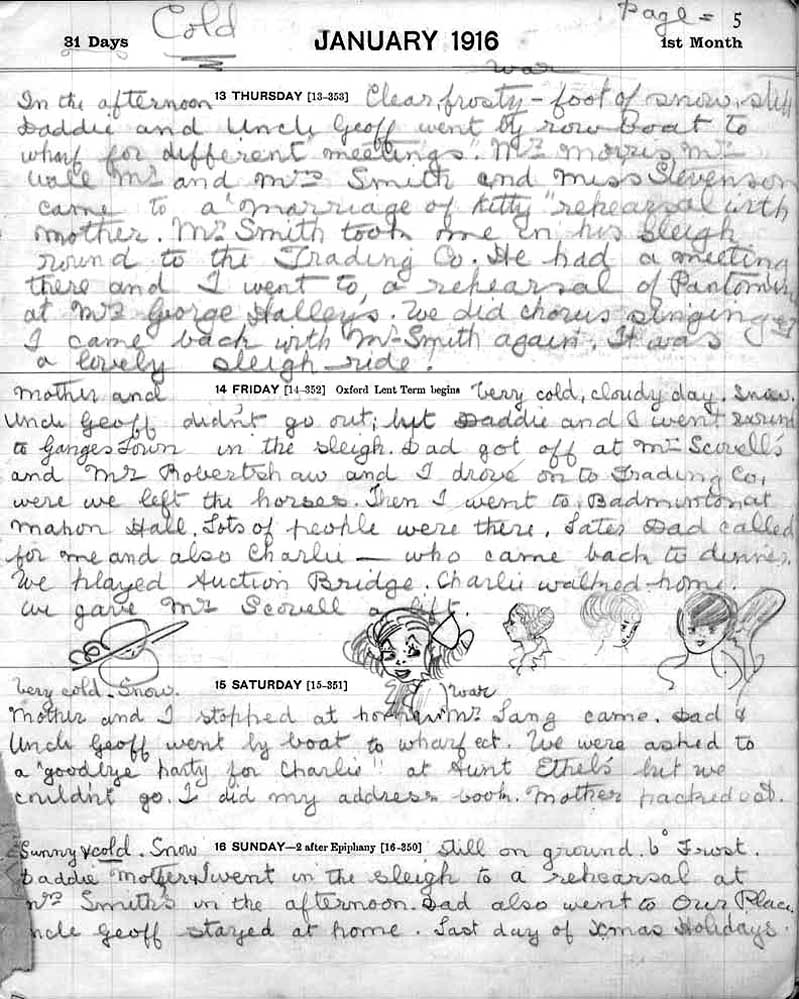 Cold
Page = 5
31 Days
JANUARY 1916
1st Month
war
In the afternoon 13 THURSDAY [13-353] Clear, frosty - foot of snow, still
Daddie and Uncle Geoff went by row boat to
wharf for different "meetings". Mr Morris, Mr
Wall Mr and Mrs Smith and Miss Stevenson
came to a "marriage of Kitty" rehearsal with
mother. Mr Smith took me in his sleigh
round to the Trading Co. He had a meeting
there and I went to a rehearsal of Pantomime
at Mrs George Halley's. We did chorus singing &
I came back with Mr Smith again. It was
a lovely sleigh-ride.
Mother and 14 FRIDAY [14-352] Oxford Lent Term begins Very cold, cloudy day. Snow.
Uncle Geoff didn't go out; but Daddie and I went round
to Ganges Town in the sleigh. Dad got off at Mr Scovell's
and Mr Robertshaw and I drove on to Trading Co,
were we left the horses. Then I went to Badminton at
Mahon Hall. Lots of people were there. Later Dad called
for me and also Charlie — who came back to dinner.
We played Auction Bridge. Charlie walked home.
We gave Mr Scovell a lift.
Very cold. Snow. 15 SATURDAY [15-351] war
Mother and I stopped at home Mr Lang came. Dad &
Uncle Geoff went by boat to wharf ect. We were asked to
a "goodbye party for Charlie"! at Aunt Ethel's but we
couldn't go. I did my address book. Mother packed ect.
Sunny & cold. Snow 16 SUNDAY—2 after Epiphany [16-350] still on ground. 6° Frost.
Daddie Mother & I went in the sleigh to a rehearsal at
Mrs Smith's in the afternoon. Dad also went to Our Place.
Uncle Geoff stayed at home. Last day of Xmas Holidays.